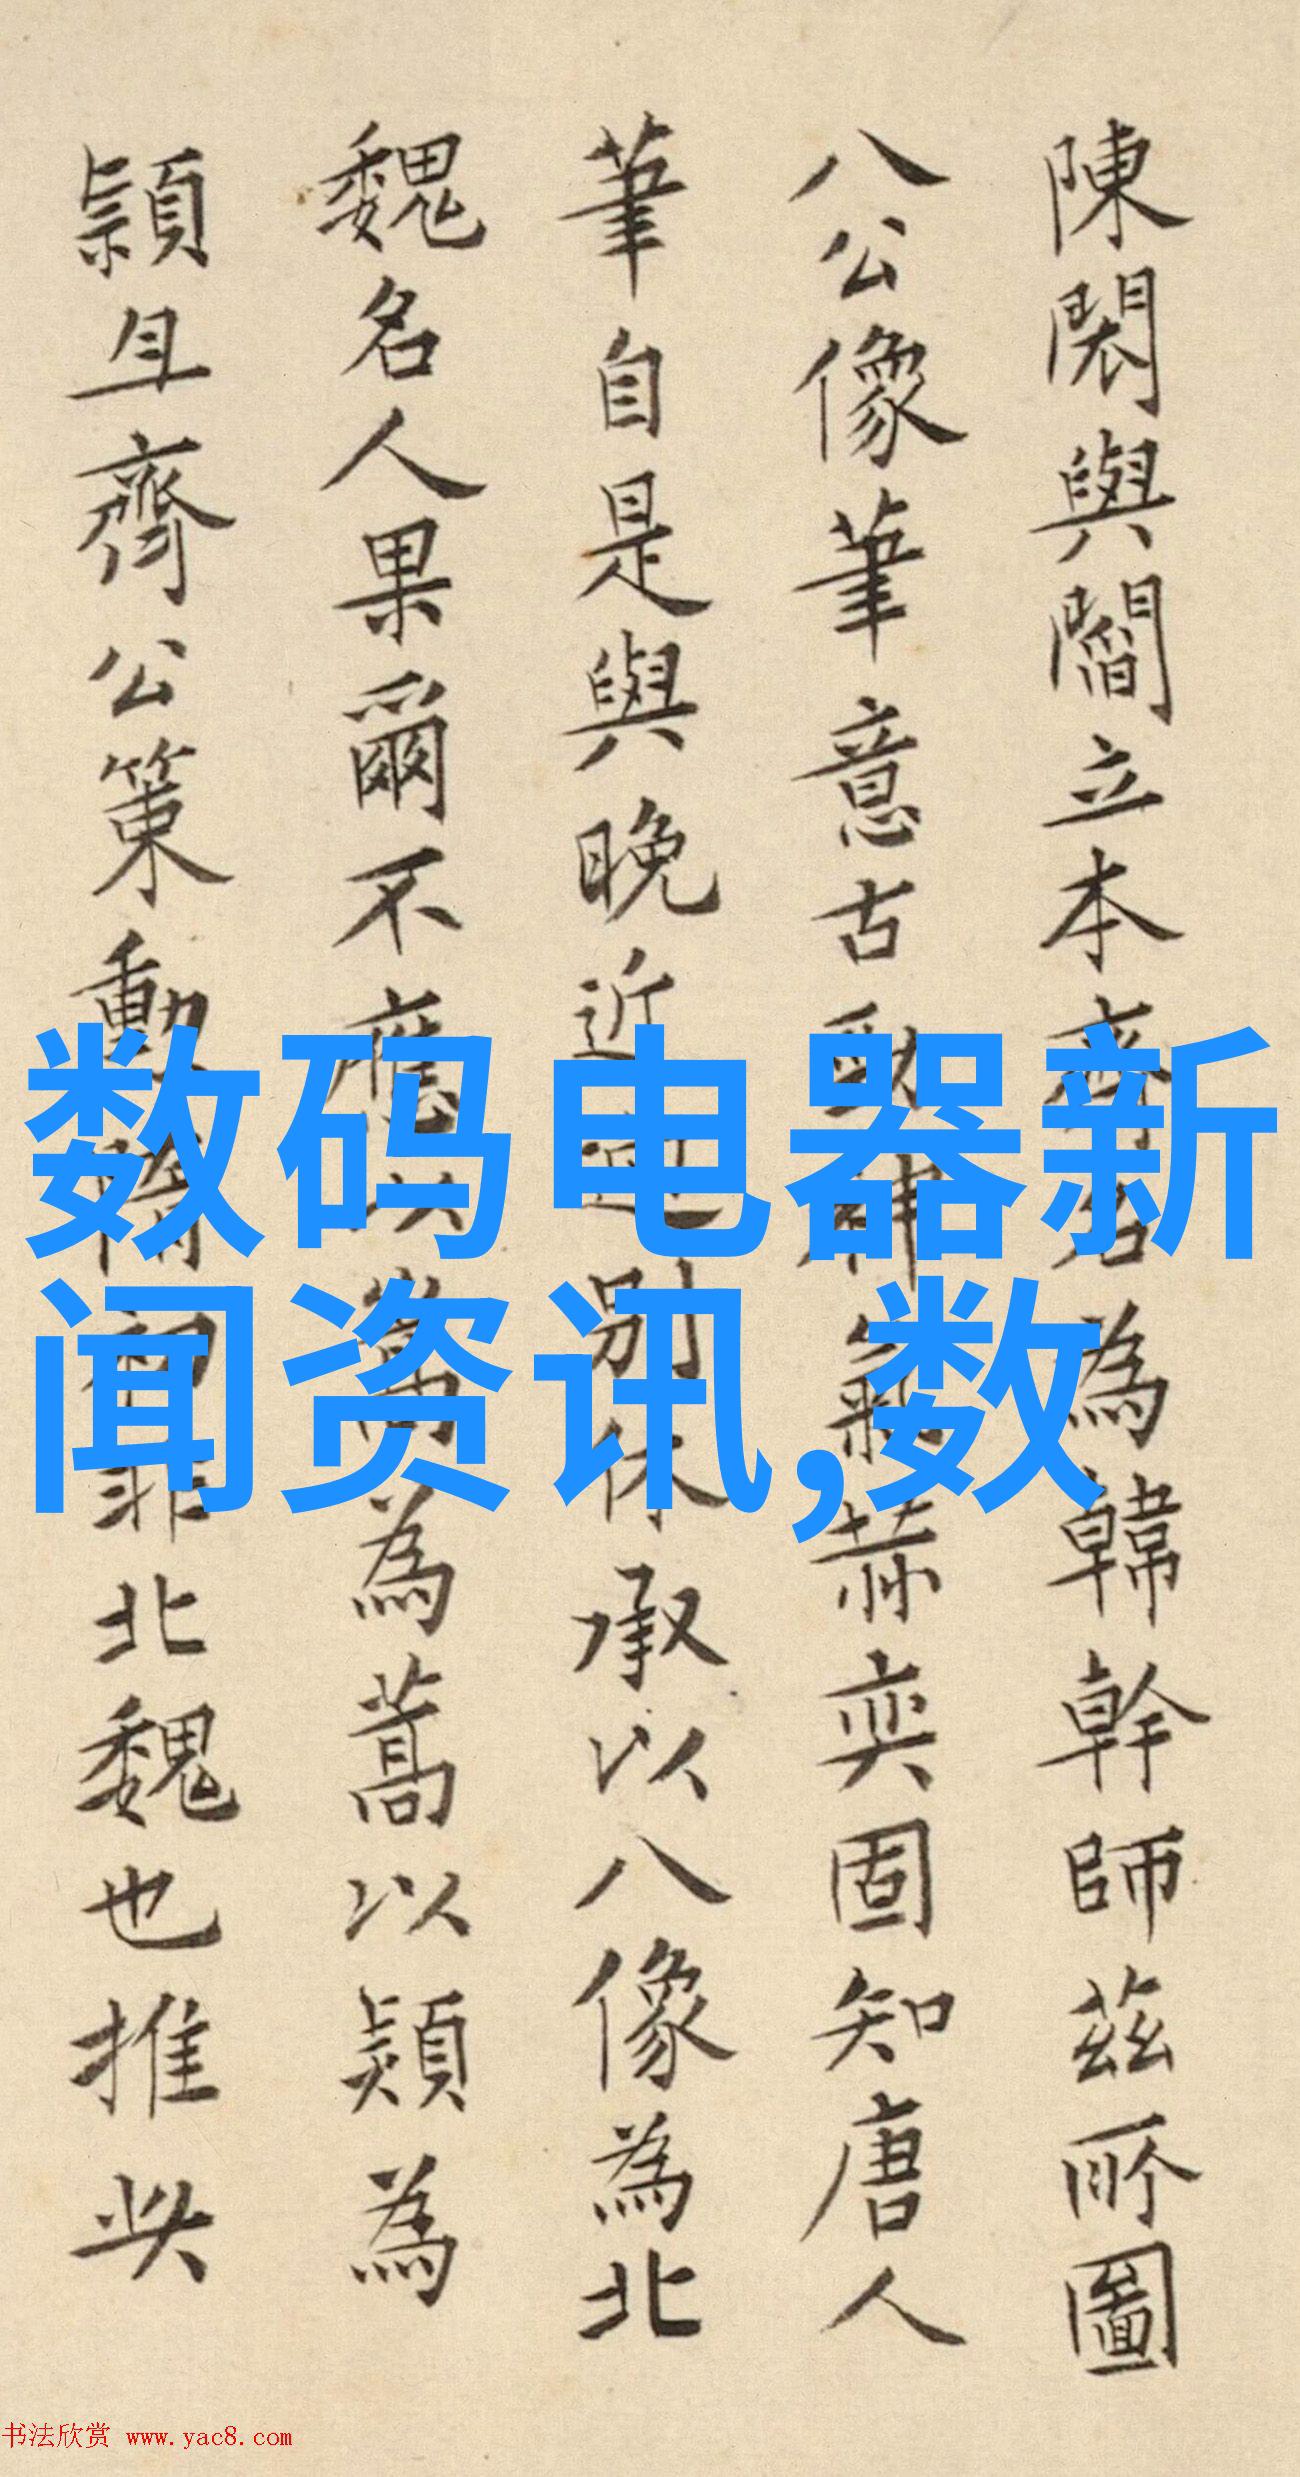 陳閎與閻立本齊名為韓幹師茲所圖
八公像筆意古勁神氣赫奕固知唐人
筆自是與晚近迥別休承以八像為北
魏名人果爾不應以嵩為蒿以頴為
頴且齊公策動
北魏也推此
数码电器新
闻资讯,数
书法欣赏 www.yac8.com